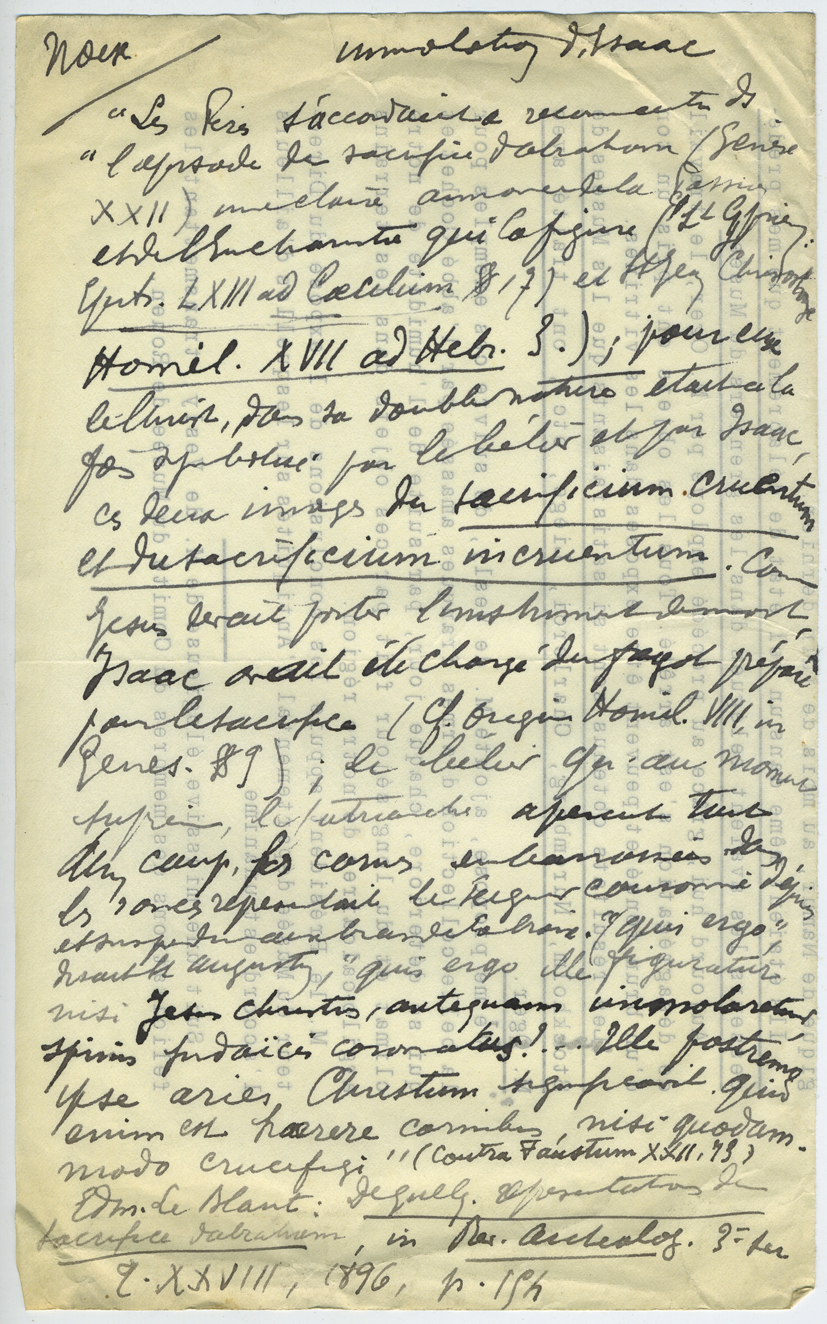 Noël immolation d'Isaac
"Les Pères s'accordaient à reconnaître ds
"l'épisode du sacrifice d'Abraham (Genèse
XXII) une claire annonce de la Passion
et de l'Eucharistie qui la figure (St Cyprien:
Epist. LXIII ad Cæcilium § 17) et St Jean Chrysostome
Homil. XVII ad Hebr. 3.); pour eux
le Christ, dans sa double nature était à la
fois symbolisé par le bélier et par Isaac,
ces deux images du sacrificium cruentum
et du sacrificium incruentum. Com
Jesus devait porter l'instrument de mort,
Isaac avait été chargé du fagot préparé
pour le sacrifice (Cf. Origin Homil. VIII, in
Genes. § 9); le bélier qu'au moment
suprême, le patriarche aperçut tout
d'un coup, les cornes embarrassées dans
les ronces représentait le Seigneur couronné d'épines
et suspendu aux bras de la croix. "quis ergo,"
disait St Augustin, "quis ergo ille figuratur
nisi Jesus Christus, antequam immolaretur,
spinis judaïcis coronatus?... Ille postremo
ipse aries, Christum significavit. quid
enim est hærere cornibus, nisi quodam-
modo crucifigi" (Contra Faustum XXII, 73)
Edm. Le Blant: De quelq. représentations du
sacrifice d'Abraham, in Rev. Archéolog. 3e ser
T. XXVIII, 1896, p. 154